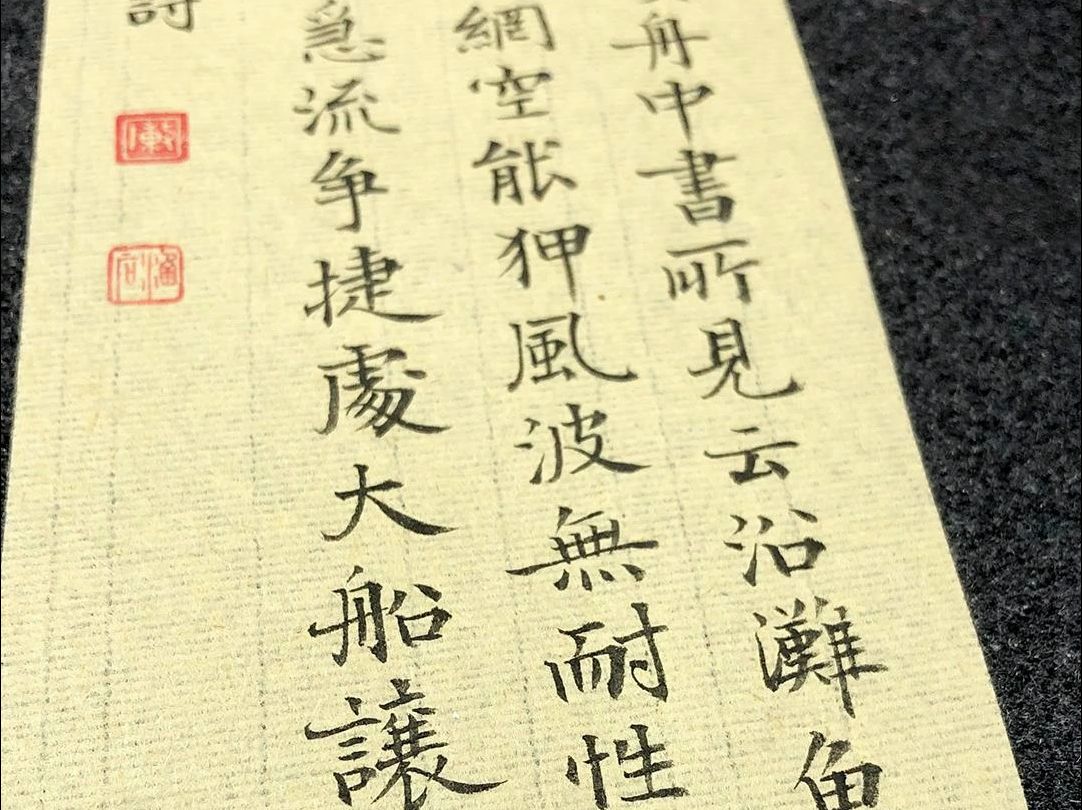 舟中書所見云沿灘魚
網空能狎風波無耐性
急流争捷處大船讓
詩